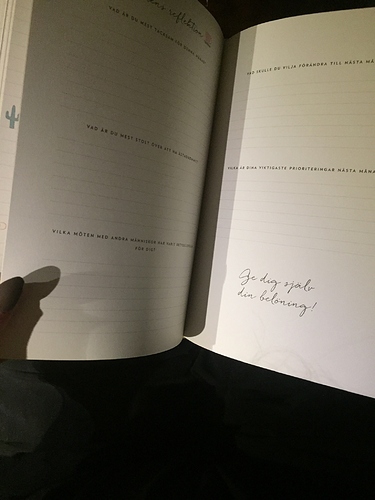 reflektion
VAD ÄR DU MEST TACKSAM FÖR DENNA
VAD ÄR DU MEST STOLT ÖVER ATT HA
VILKA MÖTEN MED ANDRA MÄNNISKOR HAR VARIT
FÖR DIG?
VAD SKULLE DU VILJA FÖRÄNDRA TILL NÄSTA MÅ
VILKA ÄR DINA VIKTIGASTE PRIORITERINGAR NÄSTA MÅNA
Ge dig själv
din belöning!